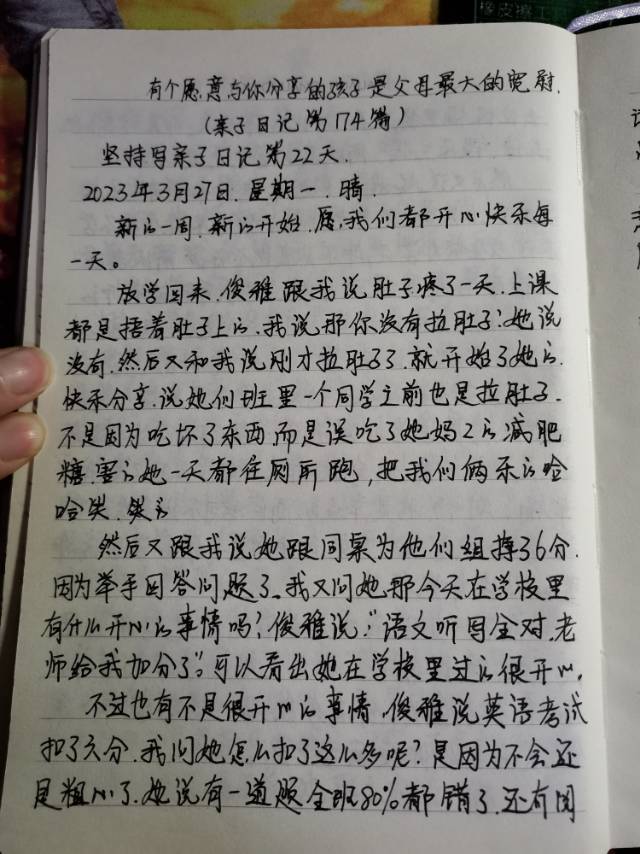 橡皮擦工
有个愿意与你分享的孩子是父母最大的宽慰.
(亲子日记第174篇)
坚持写亲子日记第22天.
2023年3月27日.星期一.晴.
新的一周.新的开始.愿.我们都开心快乐每
一天。
放学回来.俊雅跟我说肚子疼了一天.上课
都是捂着肚子上的.我说那你没有拉肚子?她说
没有.然后又和我说刚才拉肚子了.就开始了她的.
快乐分享.说她们班里一个同学之前也是拉肚子.
不是因为吃坏了东西而是误吃了她妈妈的减肥
糖.害的她一天都往厕所跑,把我们俩乐的哈
哈笑.
然后又跟我说她跟同桌为他们组挣了6分.
因为举手回答问题了。我又问她.那今天在学校里
有什么开心的事情吗?俊雅说:“语文听写全对.老
师给我加分了”。可以看出她在学校里过的很开心.
不过也有不是很开心的事情.俊雅说英语考试
扣了六分.我问她怎么扣了这么多呢?是因为不会还
是粗心了.她说有一道题全班80%都错了.还有因